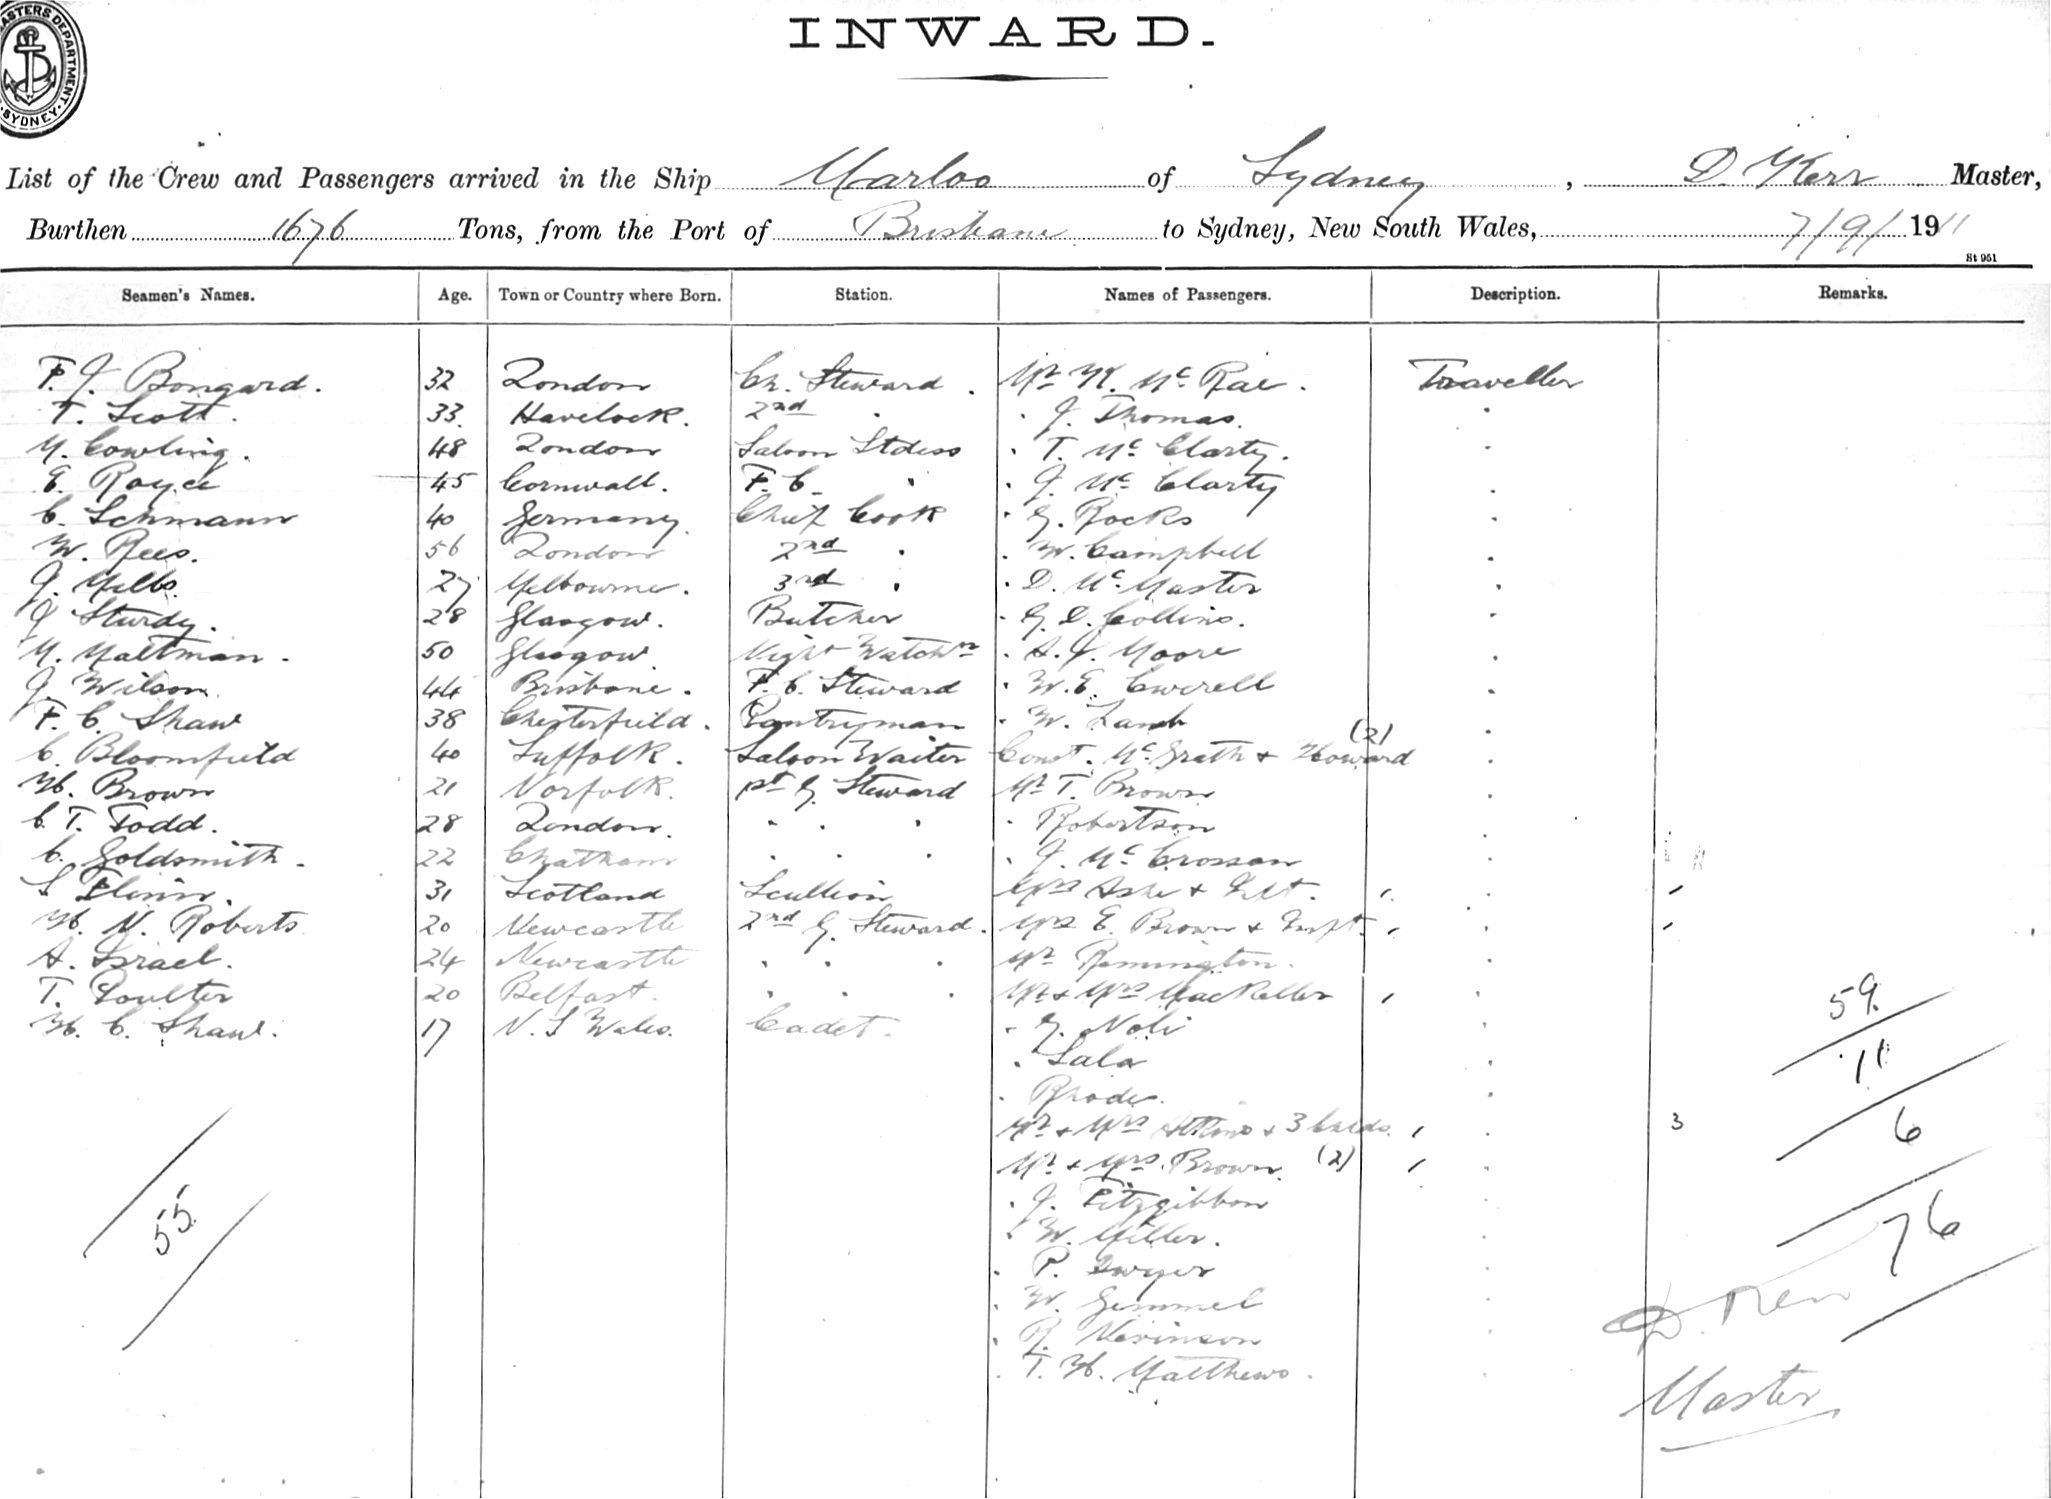 MASTERS DEPARTMENT
SYDNEY
INWARD.
List of the Crew and Passengers arrived in the Ship Marloo of Sydney, D. Kerr Master,
Burthen 1676 Tons, from the Port of Brisbane to Sydney, New South Wales, 7/9/1911
St 951
Seamen's Names. Age. Town or Country where Born. Station. Names of Passengers. Description. Remarks.
F. J. Bongard. 32 London Ch. Steward. Mr McRae. Traveller
T. Scott. 33. Havelock. 2nd " " J. Thomas. "
M. Cowling. 48 London Saloon Stdess " T. McClarty. "
E. Royce 45 Cornwall. F. C. " " J. McClarty "
C. Lehmann 40 Germany. Chief Cook " G. Rocks "
W. Rees. 56 London 2nd " " W. Campbell "
J. Mills. 27 Melbourne. 3rd " " D. McMaster "
J Sturdy. 28 Glasgow. Butcher " G. D. Collins. "
M. Maltman. 50 Glasgow. Night Watchn " A. J. Moore "
J. Wilson. 44 Brisbane. F. C. Steward " W. E. "
F. C. Shaw 38 Chesterfield. Pantryman " W. Lamb "
C. Bloomfield 40 Suffolk. Saloon Waiter Const. McGrath & Howard (2) "
H. Brown 21 Norfolk. G. Steward Mr T. Brown "
C. T. Todd. 28 London. " " " " Robertson "
C. Goldsmith. 22 Chatham " " " " J. McCrossan "
S Flinn. 31 Scotland Scullion Mrs & "
H. N. Roberts 20 Newcastle 2nd G. Steward. Mrs E. Brown & Inft. "
A. Israel. 24 Newcastle " " " Mr Remington. "
T. Poulter 20 Belfast. " " " Mr & Mrs MacKellar " 59.
H. C. Shaw. 17 N. S Wales. Cadet. " G. Noli "
" Lala " 11
" Rhodes. "
Mr & Mrs Atkins & 3 Childs. " 3 6
Mr & Mrs Brown (2) "
" J. Fitzgibbon "
55. " W. Miller. " 76
" P. Dwyer "
" W. Gemmel " D. Kerr
" R. Nevinson "
" T. H. Matthews. " Master